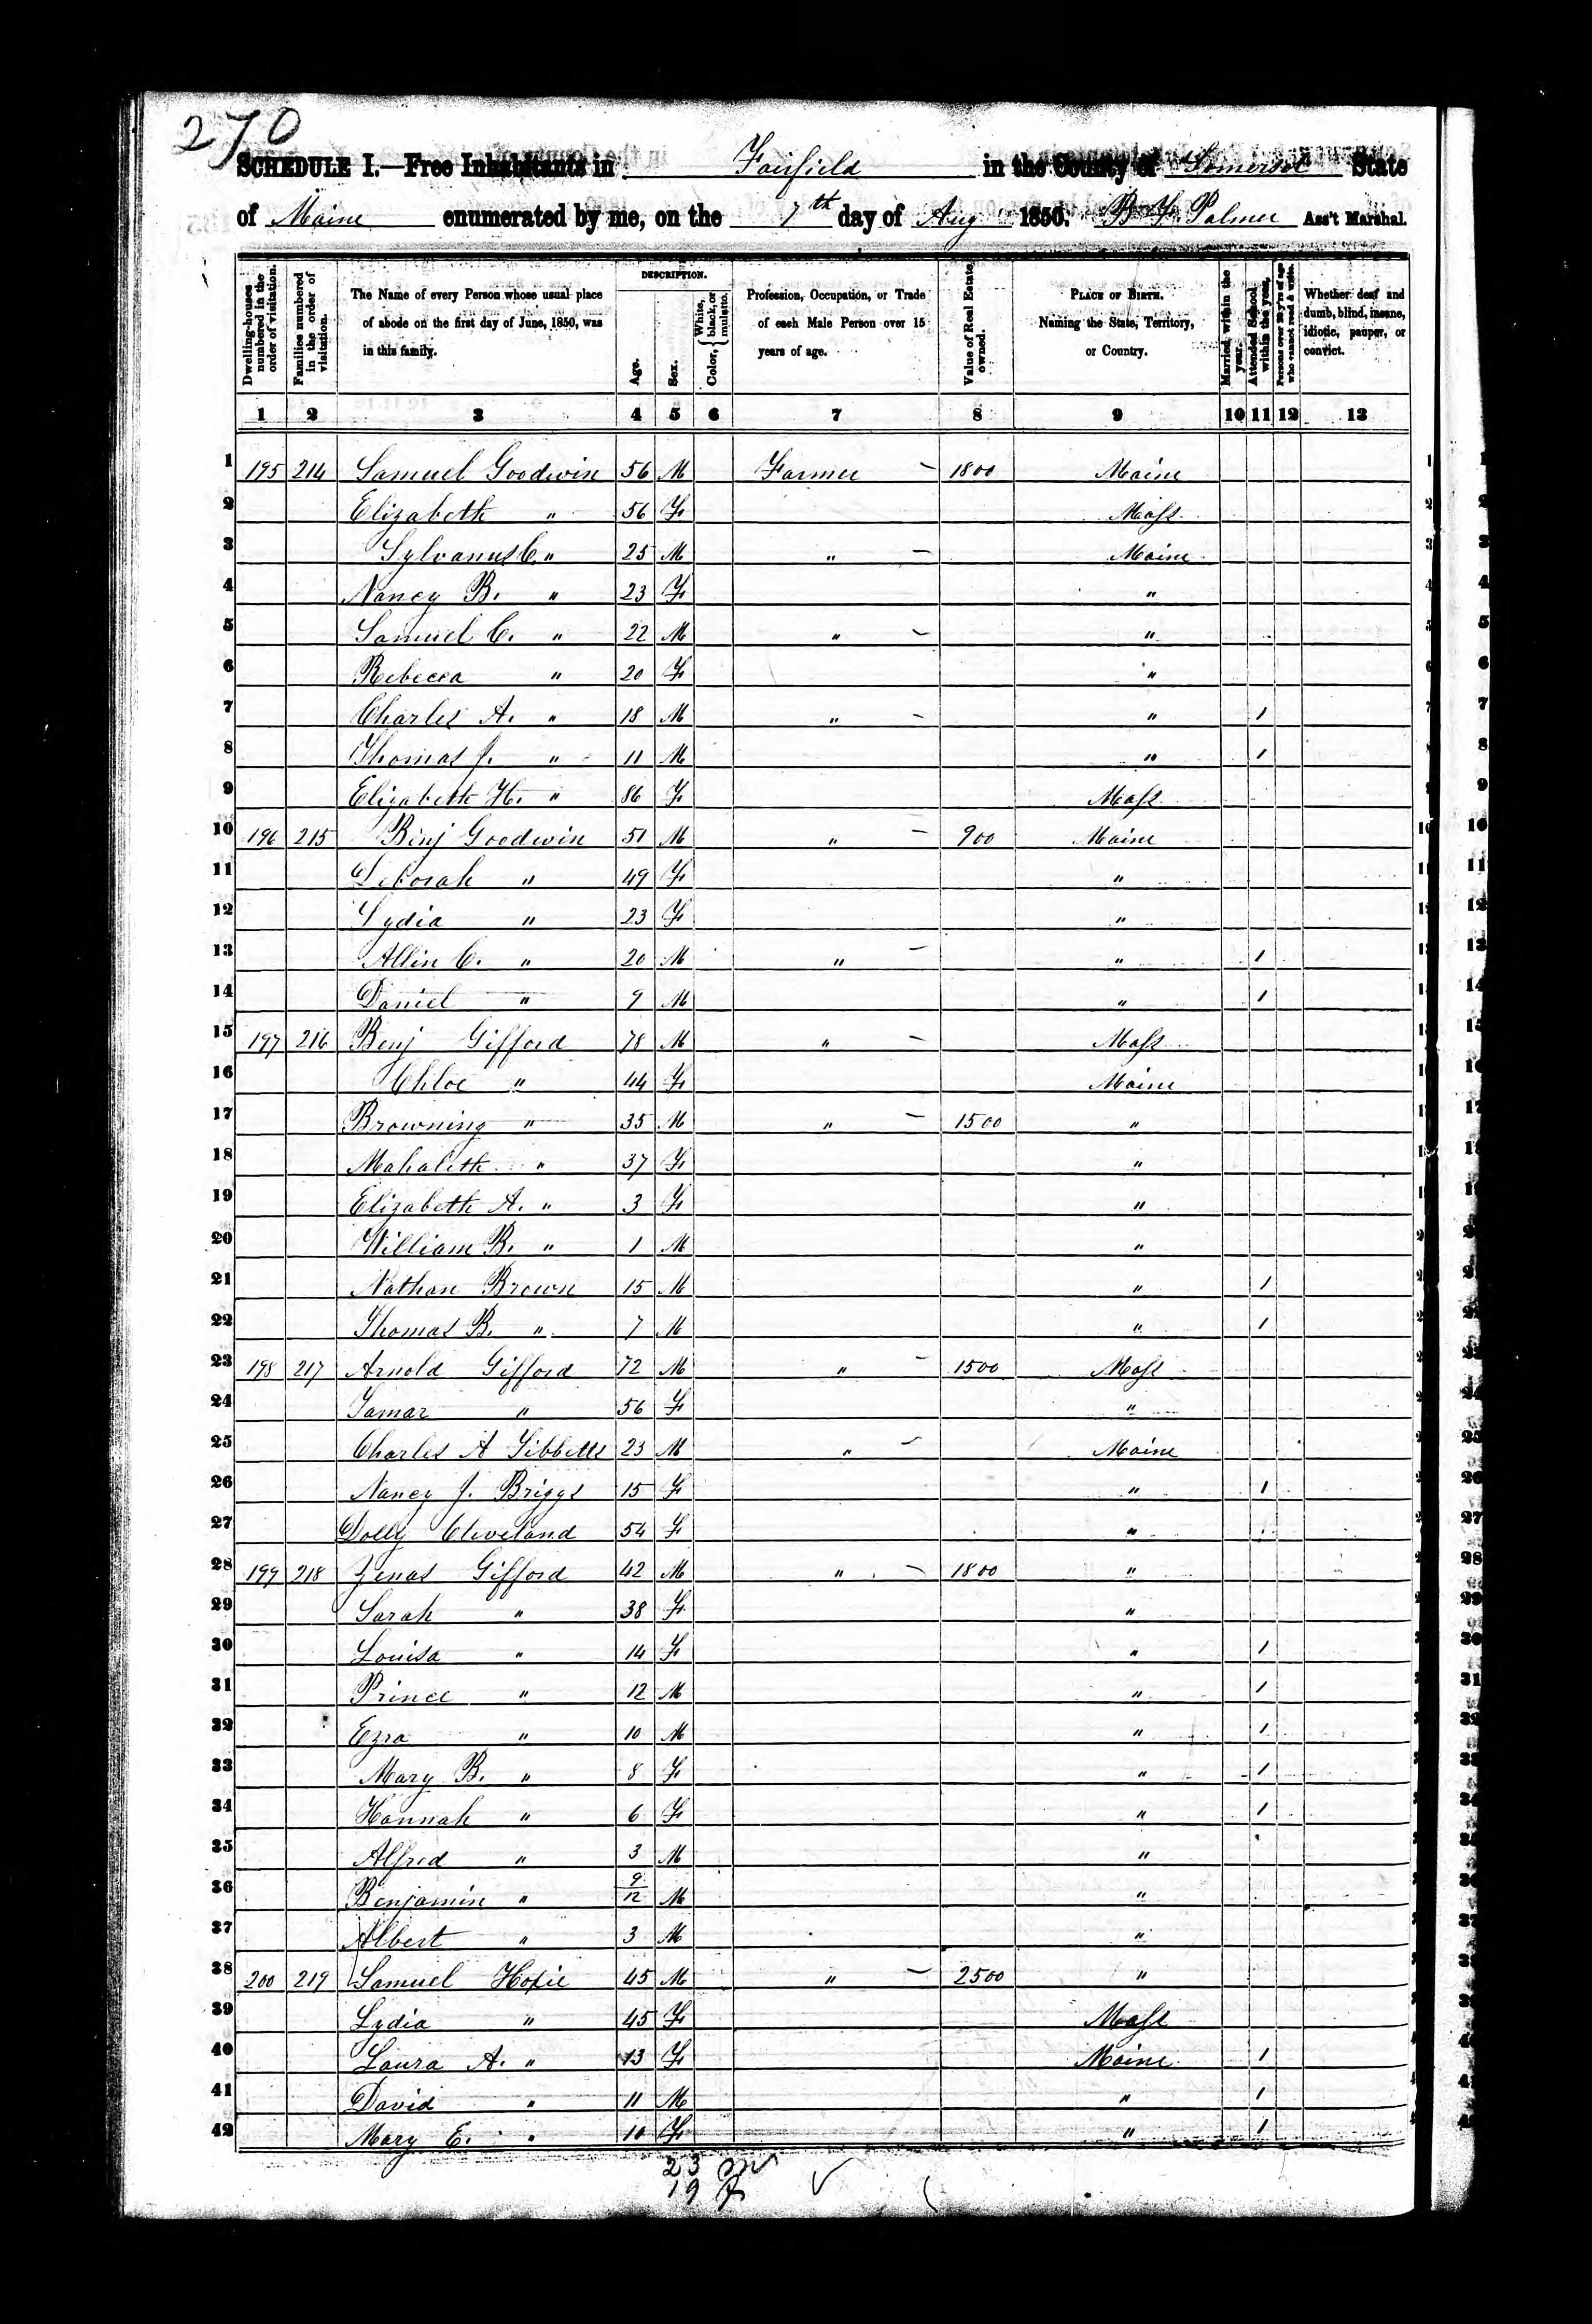 270
SCHEDULE I.—Free Inhabitants in Fairfield in the County of Somerset State
of Maine enumerated by me, on the 7th day of Aug 1850. B F Palmer Ass't Marshal.
Dwelling-houses numbered in the order of visitation.
Families numbered in the order of visitation.
The Name of every Person whose usual place of abode on the first day of June, 1850, was in this family.
DESCRIPTION.
Age.
Sex.
Color, { White, black, or mulatto.
Profession, Occupation, or Trade of each Male Person over 15 years of age.
Value of Real Estate owned.
PLACE OF BIRTH. Naming the State, Territory, or Country.
Married within the year.
Attended School within the year.
Persons over 20 y'rs of age who cannot read & write.
Whether deaf and dumb, blind, insane, idiotic, pauper, or convict.
1 2 3 4 5 6 7 8 9 10 11 12 13
1 195 214 Samuel Goodwin 56 M Farmer – 1800 Maine 1
2 Elizabeth " 56 F Mass 2
3 Sylvanus C. " 25 M " – Maine 3
4 Nancy B. " 23 F " 4
5 Samuel C. " 22 M " – " 5
6 Rebecca " 20 F " 6
7 Charles A. " 18 M " – " 1 7
8 Thomas J. " 11 M " 1 8
9 Elizabeth H. " 86 F Mass 9
10 196 215 Binj Goodwin 51 M " – 900 Maine 10
11 Deborah " 49 F " 11
12 Lydia " 23 F " 12
13 Allin C. " 20 M " – " 1 13
14 Daniel " 9 M " 1 14
15 197 216 Benj Gifford 78 M " – Mass 15
16 Chloe " 44 F Maine 16
17 Browning " 35 M " – 1500 " 17
18 Mahaleth " 37 F " 18
19 Elizabeth A. " 3 F "
20 William B. " 1 M "
21 Nathan Brown 15 M " 1
22 Thomas B. " 7 M " 1
23 198 217 Arnold Gifford 72 M " – 1500 Mass
24 Tamar " 56 F " 24
25 Charles A Tibbetts 23 M " – Maine 25
26 Nancy J. Briggs 15 F " 1 26
27 Dolly Cleveland 54 F " 27
28 199 218 Zenas Gifford 42 M " – 1800 " 28
29 Sarah " 38 F " 29
30 Louisa " 14 F " 1 30
31 Prince " 12 M " 1 31
32 Ezra " 10 M " 1 32
33 Mary B. " 8 F " 1
34 Hannah " 6 F " 1
35 Alfred " 3 M "
36 Benjamin " 9/12 M "
37 Albert " 3 M "
38 200 219 Samuel Hoxie 45 M " – 2500 "
39 Lydia " 45 F Mass
40 Laura A. " 13 F Maine 1
41 David " 11 M " 1
42 Mary E. " 10 F " 1
23 m
19 f